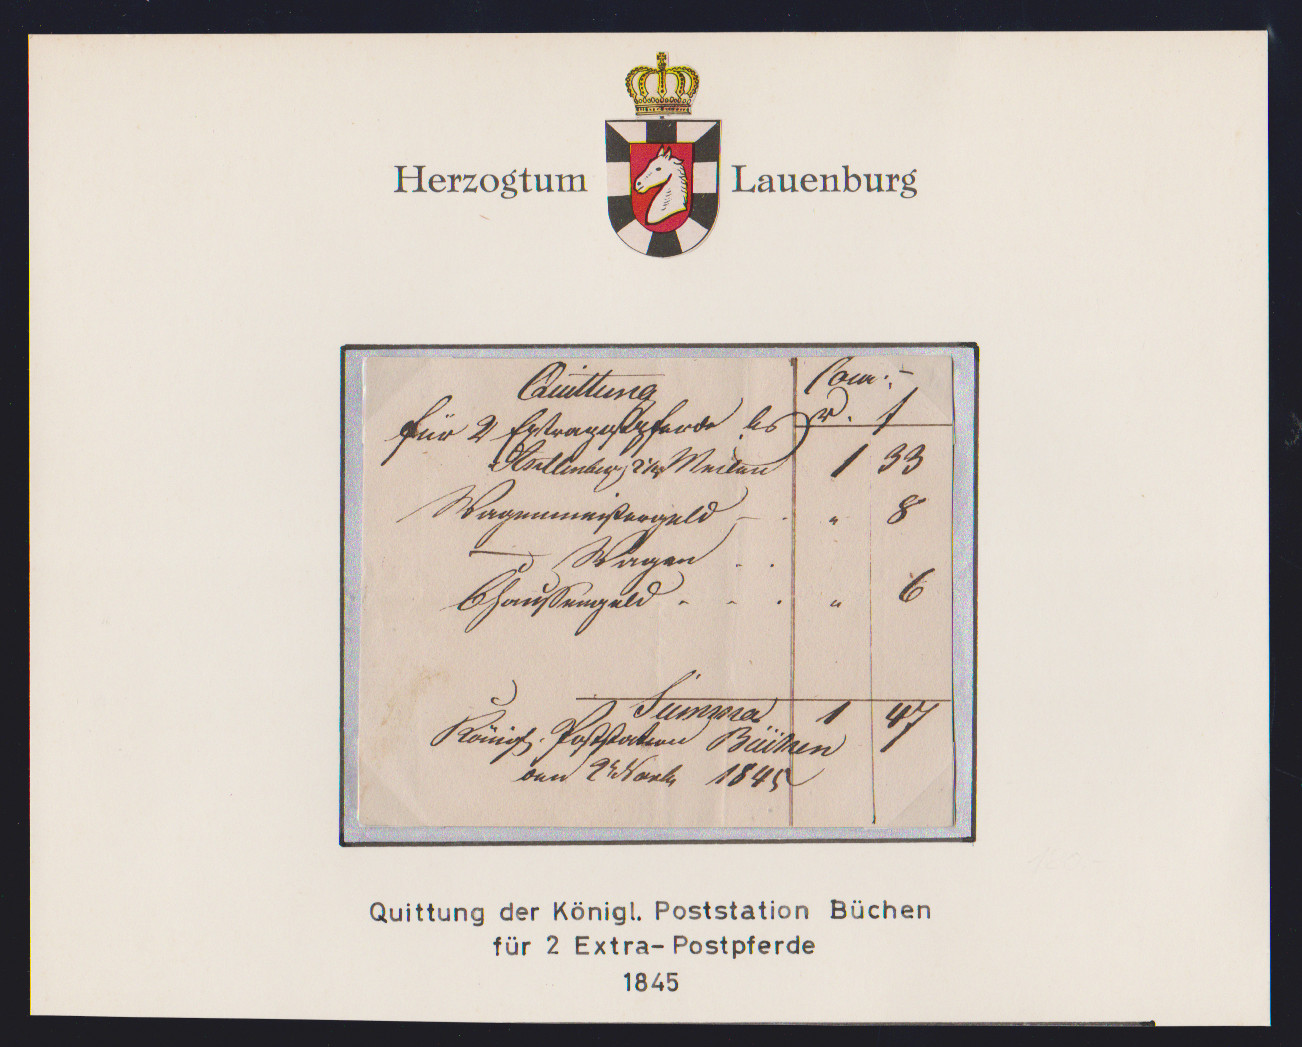 Herzogtum Lauenburg
Quittung
für 2 Extrapostpferde bis
Meilen 1 33
Wagenmeistergeld - . " 8
— Wagen . .
Chausseegeld . . . " 6
Summa 1 47
Königl. Poststation Büchen
den 1845
Quittung der Königl. Poststation Büchen
für 2 Extra-Postpferde
1845